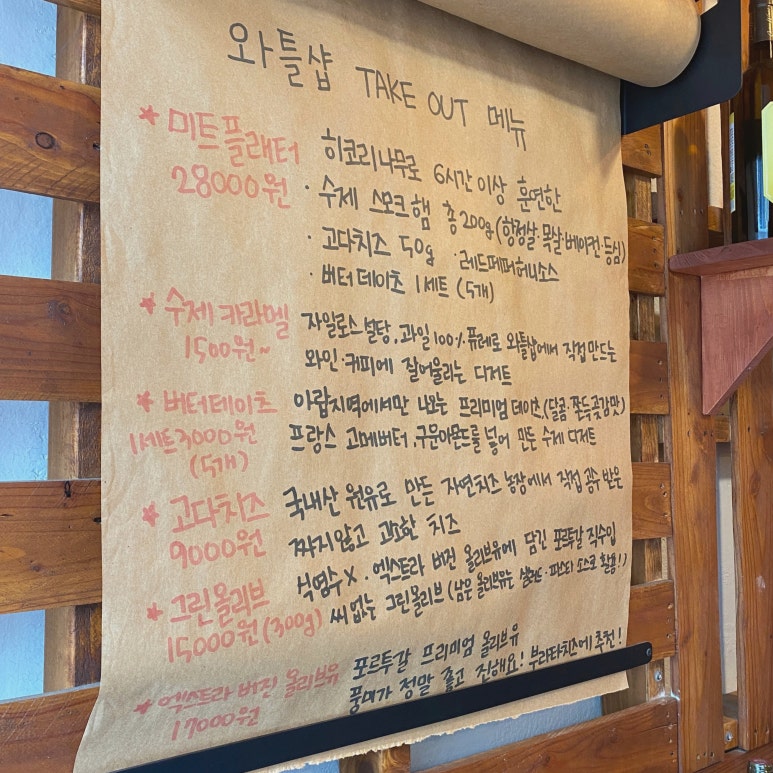 와틀샵 TAKE OUT 메뉴
* 미트플래터
28000원
히코리나무로 6시간 이상 훈연한
· 수제 스모크햄 총 200g (항정살·목살·베이컨·등심)
· 고다치즈 50g · 레드페퍼허니소스
· 버터데이츠 1세트 (5개)
* 수제 카라멜
1500원~
자일로스설탕, 과일100% 퓨레로 와틀샵에서 직접 만드는
와인·커피에 잘어울리는 디저트
* 버터데이츠
1세트 3000원
(5개)
아랍지역에서만 나오는 프리미엄 데이츠, (달콤·쫀득 곶감맛)
프랑스 고메버터, 구운아몬드를 넣어 만든 수제 디저트
* 고다치즈
9000원
국내산 원유로 만든 자연치즈 농장에서 직접 공수 받은
짜지않고 고소한 치즈
* 그린올리브
15000원 (300g)
식염수X · 엑스트라 버진 올리브유에 담긴 포르투갈 직수입
씨 없는 그린올리브 (남은 올리브유는 샐러드·파스타 소스로 활용!)
* 엑스트라 버진 올리브유
17000원
포르투갈 프리미엄 올리브유
풍미가 정말 좋고 진해요! 부라타치즈에 추천!